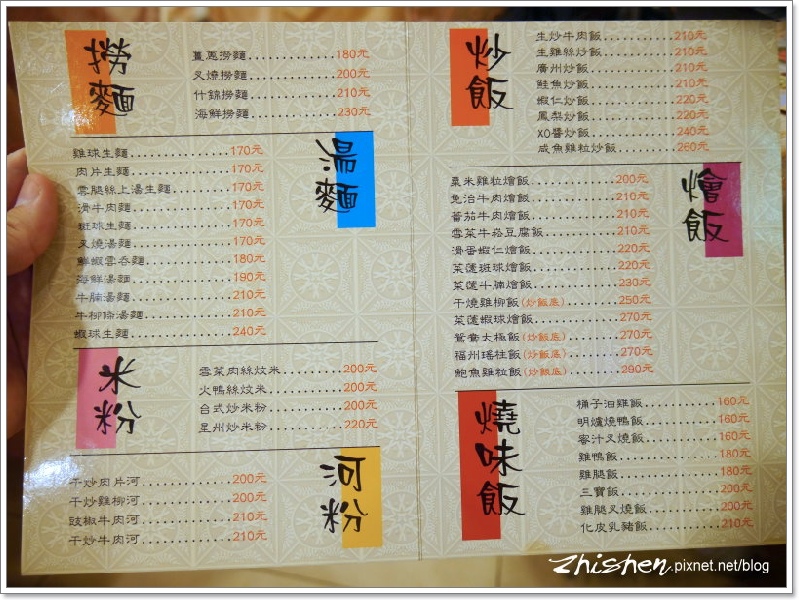 撈麵
薑蔥撈麵 180元
叉燒撈麵 200元
什錦撈麵 210元
海鮮撈麵 230元
湯麵
雞球生麵 170元
肉片生麵 170元
雲腿絲上湯生麵 170元
滑牛肉麵 170元
斑球生麵 170元
叉燒湯麵 170元
鮮蝦雲吞麵 180元
海鮮湯麵 190元
牛腩湯麵 210元
牛柳條湯麵 210元
蝦球生麵 240元
米粉
雪菜肉絲炆米 200元
火鴨絲炆米 200元
台式炒米粉 200元
星州炒米粉 220元
河粉
干炒肉片河 200元
干炒雞柳河 200元
豉椒牛肉河 210元
干炒牛肉河 210元
炒飯
生炒牛肉飯 210元
生雞絲炒飯 210元
廣州炒飯 210元
鮭魚炒飯 210元
蝦仁炒飯 220元
鳳梨炒飯 220元
XO醬炒飯 240元
咸魚雞粒炒飯 260元
燴飯
粟米雞粒燴飯 200元
免治牛肉燴飯 210元
蕃茄牛肉燴飯 210元
雪菜牛崧豆腐飯 210元
滑蛋蝦仁燴飯 220元
菜薳斑球燴飯 220元
菜薳牛腩燴飯 230元
干燒雞柳飯(炒飯底) 250元
菜薳蝦球燴飯 270元
鴛鴦太極飯(炒飯底) 270元
福州瑤柱飯(炒飯底) 270元
鮑魚雞粒飯(炒飯底) 290元
燒味飯
桶子油雞飯 160元
明爐燒鴨飯 160元
蜜汁叉燒飯 160元
雞鴨飯 180元
雞腿飯 180元
三寶飯 200元
雞腿叉燒飯 200元
化皮乳豬飯 210元
zhishen.pixnet.net/blog